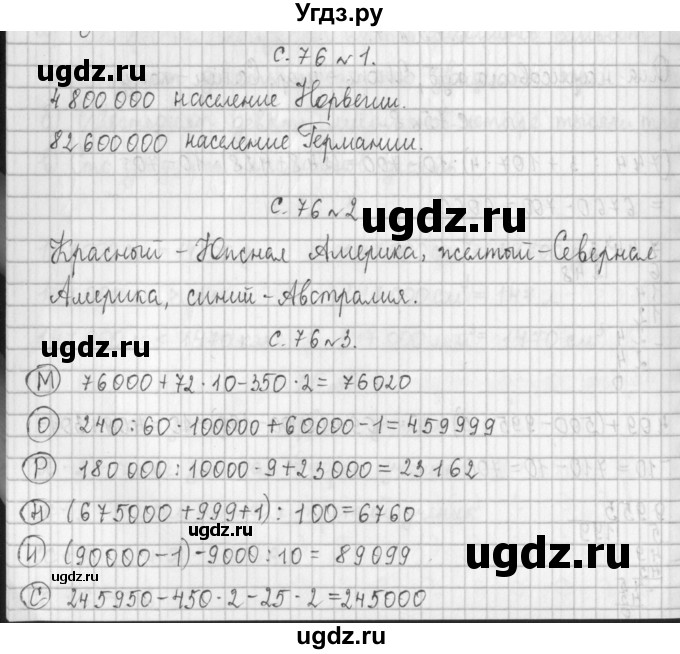 Угдз.ру
с. 76 №1.
4800000 население Норвегии.
82600000 население Германии.
с. 76 №2
Красный - Южная Америка, желтый - Северная
Америка, синий - Австралия.
с. 76 №3.
М 76000+72·10-350·2= 76020
О 240:60·100000+60000-1=459999
Р 180000:10000·9+23000=23162
Н (675000+999+1):100=6760
И (90000-1)-9000:10= 89099
С 245950-450·2-25·2=245000
ugdz.ru
ugdz.ru
ugdz.ru
ugdz.ru
ugdz.ru
ugdz.ru
ugdz.ru
ugdz.ru